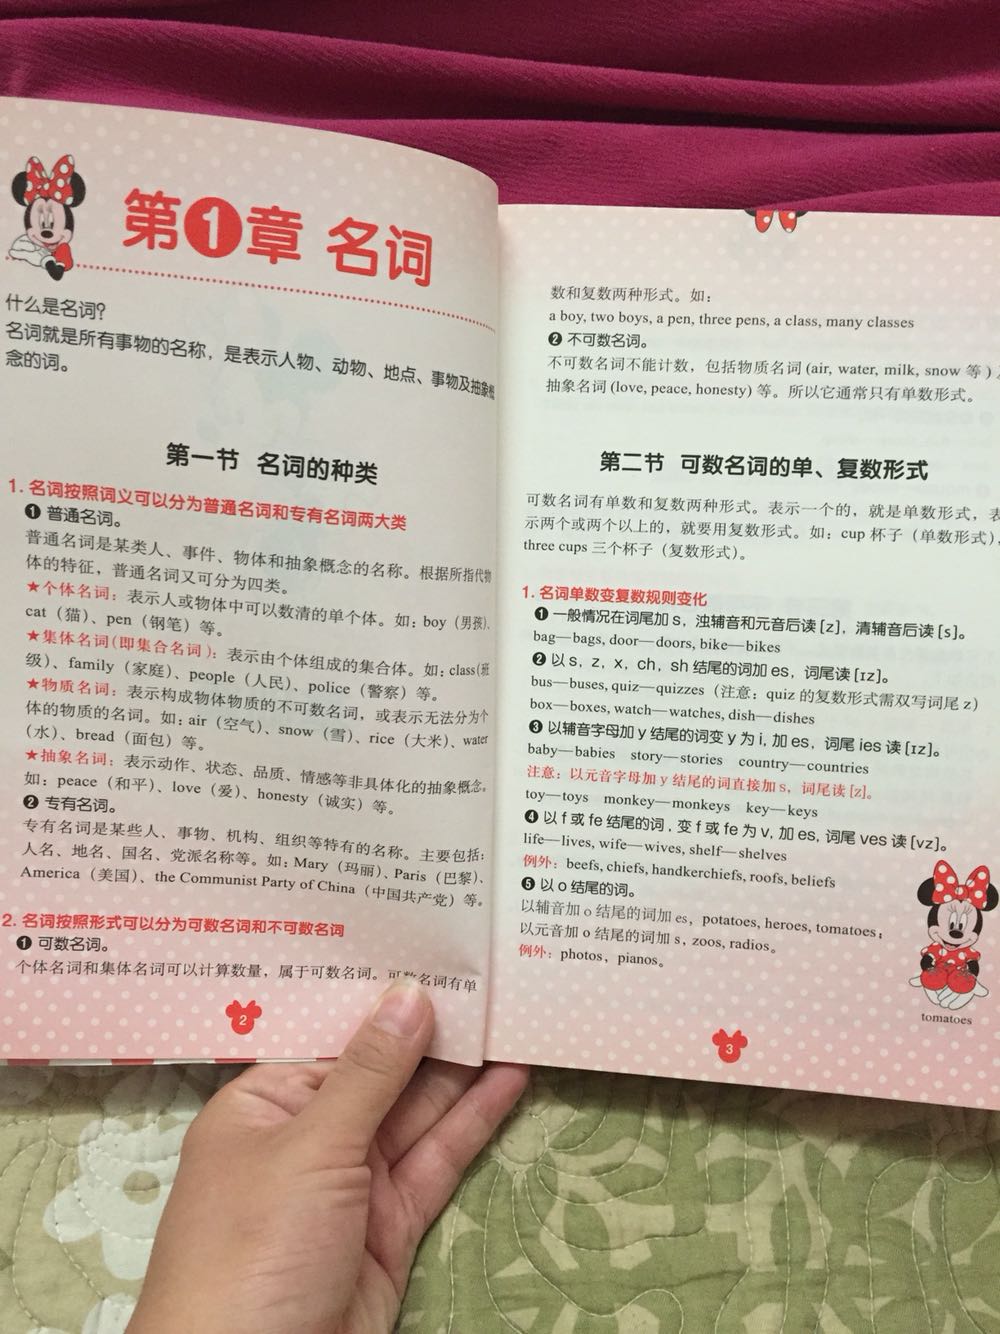 第1章 名词
什么是名词?
名词就是所有事物的名称，是表示人物、动物、地点、事物及抽象概
念的词。
第一节 名词的种类
1. 名词按照词义可以分为普通名词和专有名词两大类
❶ 普通名词。
普通名词是某类人、事件、物体和抽象概念的名称。根据所指代物
体的特征，普通名词又可分为四类。
★个体名词：表示人或物体中可以数清的单个体。如：boy（男孩）、
cat（猫）、pen（钢笔）等。
★集体名词（即集合名词）：表示由个体组成的集合体。如：class（班
级）、family（家庭）、people（人民）、police（警察）等。
★物质名词：表示构成物体物质的不可数名词，或表示无法分为个
体的物质的名词。如：air（空气）、snow（雪）、rice（大米）、water
（水）、bread（面包）等。
★抽象名词：表示动作、状态、品质、情感等非具体化的抽象概念。
如：peace（和平）、love（爱）、honesty（诚实）等。
❷ 专有名词。
专有名词是某些人、事物、机构、组织等特有的名称。主要包括：
人名、地名、国名、党派名称等。如：Mary（玛丽）、Paris（巴黎）、
America（美国）、the Communist Party of China（中国共产党）等。
2. 名词按照形式可以分为可数名词和不可数名词
❶ 可数名词。
个体名词和集体名词可以计算数量，属于可数名词。可数名词有单
2
数和复数两种形式。如：
a boy, two boys, a pen, three pens, a class, many classes
❷ 不可数名词。
不可数名词不能计数，包括物质名词 (air, water, milk, snow 等 )
抽象名词 (love, peace, honesty) 等。所以它通常只有单数形式。
第二节 可数名词的单、复数形式
可数名词有单数和复数两种形式。表示一个的，就是单数形式，表
示两个或两个以上的，就要用复数形式。如：cup 杯子（单数形式），
three cups 三个杯子（复数形式）。
1. 名词单数变复数规则变化
❶ 一般情况在词尾加 s，浊辅音和元音后读 [z]，清辅音后读 [s]。
bag—bags, door—doors, bike—bikes
❷ 以 s，z，x，ch，sh 结尾的词加 es，词尾读 [ɪz]。
bus—buses, quiz—quizzes（注意：quiz 的复数形式需双写词尾 z）
box—boxes, watch—watches, dish—dishes
❸ 以辅音字母加 y 结尾的词变 y 为 i, 加 es，词尾 ies 读 [ɪz]。
baby—babies story—stories country—countries
注意：以元音字母加 y 结尾的词直接加 s，词尾读 [z]。
toy—toys monkey—monkeys key—keys
❹ 以 f 或 fe 结尾的词 , 变 f 或 fe 为 v, 加 es, 词尾 ves 读 [vz]。
life—lives, wife—wives, shelf—shelves
例外：beefs, chiefs, handkerchiefs, roofs, beliefs
❺ 以 o 结尾的词。
以辅音加 o 结尾的词加 es，potatoes, heroes, tomatoes；
以元音加 o 结尾的词加 s，zoos, radios。
例外：photos，pianos。
tomatoes
3